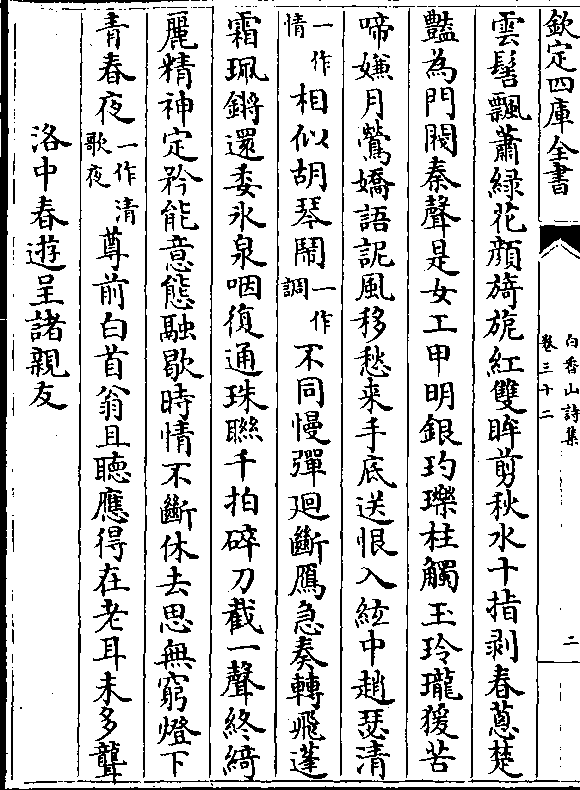 欽定四庫全書
白香山詩集
卷三十二
二
雲髻飄蕭綠花顔旖旎紅雙眸剪秋水十指剥春蔥楚
豔為門閥秦聲是女工甲明銀玓瓅柱觸玉玲瓏猨苦
啼嫌月鶯嬌語詑風移愁來手底送恨入絃中趙瑟清
一作情相似胡琴鬧一作調不同慢彈廻斷鴈急奏轉飛蓬
霜珮鏘還委氷泉咽復通珠聯千拍碎刀截一聲終綺
麗精神定矜能意態融歇時情不斷休去思無窮燈下
青春夜一作清歌夜尊前白首翁且聴應得在老耳未多聾
洛中春遊呈諸親友